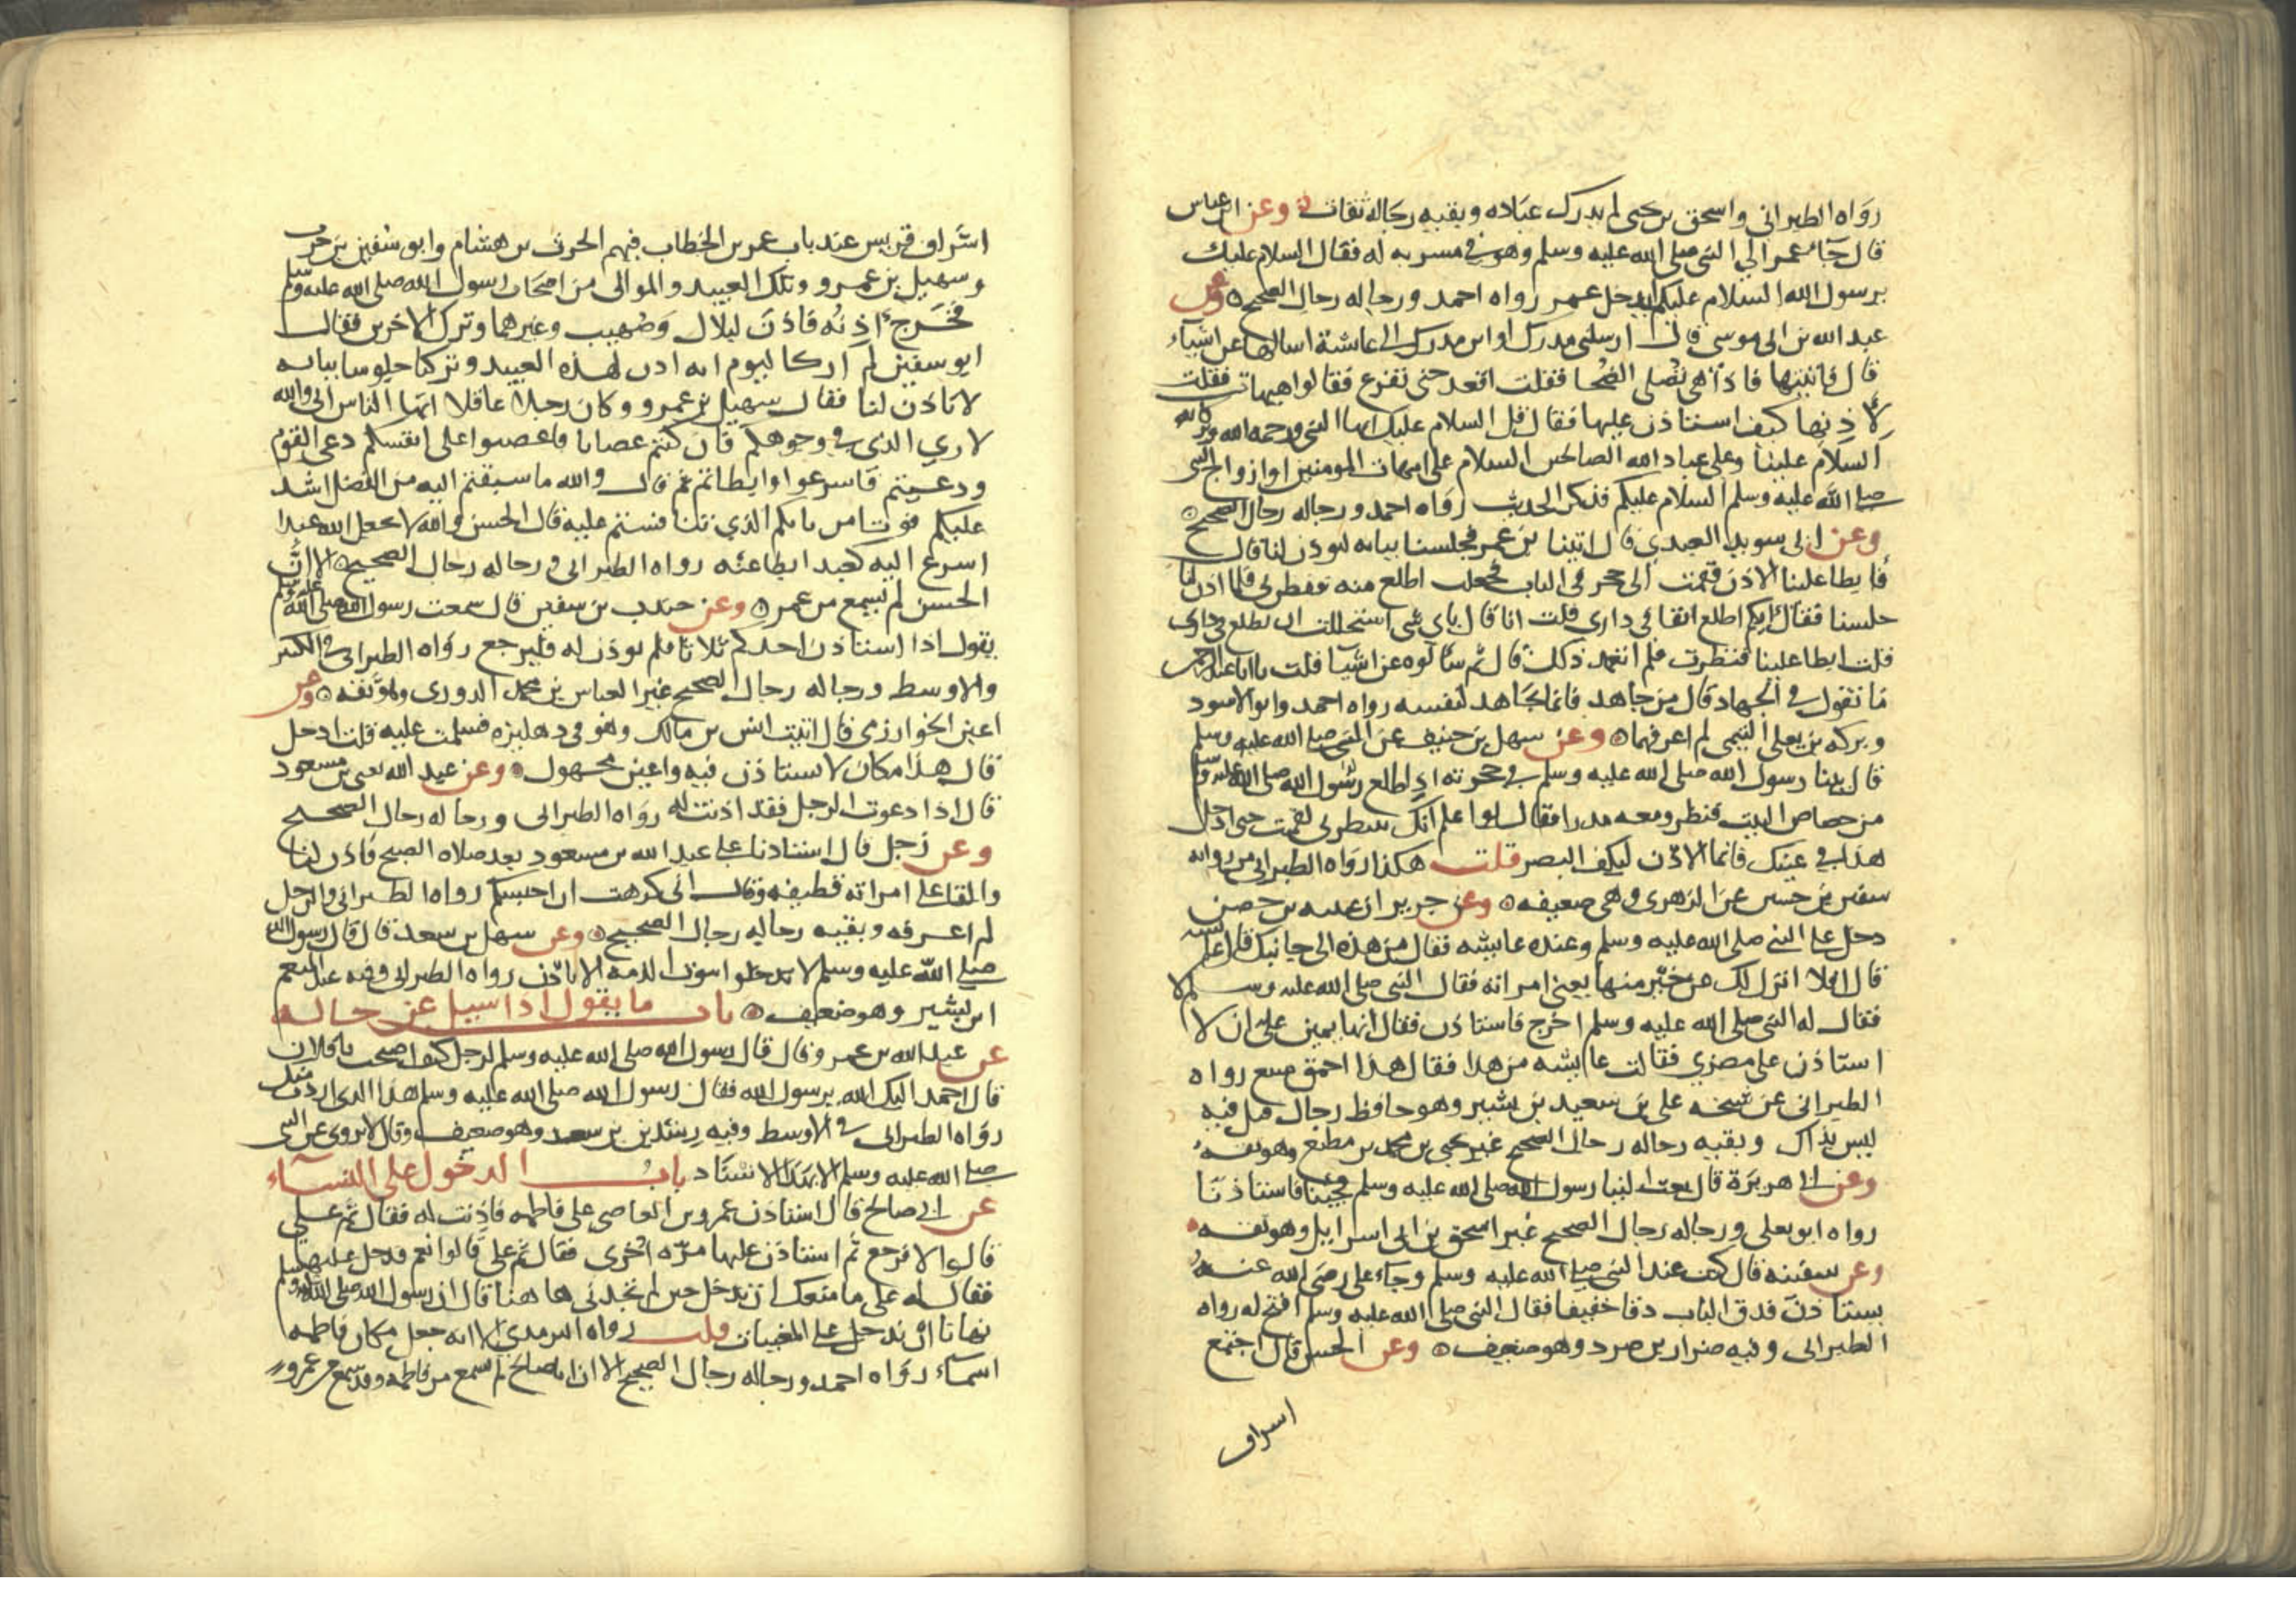 رواه الطبراني واسحق بن يحيى لم يدرك عباده وبقيه رجاله ثقات وعن ابن عباس
قال جاء عمر الى النبي صلى الله عليه وسلم وهو في مسربه له فقال السلام عليك
يرسول الله السلام عليكم ايدخل عمر رواه احمد ورجاله رجال الصحيح وعن
عبد الله بن ابي موسى قال ارسلني مدرك او ابن مدرك الى عائشة اسالها عن اشياء
قال فاتيتها فاذا هي تصلي الضحا فقلت اقعد حتى تفرغ فقالوا هيهات فقلت
لآذنها كيف استاذن عليها فقال قل السلام عليك ايها النبي ورحمه الله وبركاته
السلام علينا وعلى عباد الله الصالحين السلام على امهات المومنين او ازواج النبي
صلى الله عليه وسلم السلام عليكم فذكر الحديث رواه احمد ورجاله رجال الصحيح
وعن ابي سويد العبدي قال اتينا بن عمر فجلسنا ببابه ليوذن لنا قال
فابطا علينا الاذن فقمت الى حجر في الباب فجعلت اطلع منه ففطن لي فلما اذن لنا
جلسنا فقال ايكم اطلع انفا في داري قلت انا قال باي شي استحللت ان تطلع في داري
قلت ابطا علينا فنظرت فلم اتعمد ذلك قال ثم سالوه عن اشيا قلت يا ابا عبد الرحمن
ما تقول في الجهاد قال من جاهد فانما يجاهد لنفسه رواه احمد وابو الاسود
وبركه بن يعلى التيمي لم اعرفهما وعن سهل بن حنيف عن النبي صلى الله عليه وسلم
قال بينا رسول الله صلى الله عليه وسلم في حجرته اذ اطلع رسول الله صلى الله عليه وسلم
من خصاص البيت فنظر ومعه مدرا فقال لو اعلم انك تنظرني لقمت حتى ادخل
هذا في عينك فانما الاذن ليكف البصر قلت هكذا رواه الطبراني من روايه
سفين بن حسين عن الزهري وهي ضعيفه وعن جرير ان عيينه بن حصن
دخل على النبي صلى الله عليه وسلم وعنده عايشه فقال من هذه الى جانبك قال عايشه
قال افلا انزل لك عن خير منها يعني امراته فقال النبي صلى الله عليه وسلم لا
فقال له النبي صلى الله عليه وسلم اخرج فاستاذن فقال انها يمين علي ان لا
استاذن على مضري فقالت عايشه من هذا فقال هذا احمق متبع رواه
الطبراني عن شيخه علي بن سعيد بن بشير وهو حافظ رحال قيل فيه
ليس بذاك وبقيه رجاله رجال الصحيح غير يحيى بن محمد بن مطيع وهو ثقه
وعن ابي هريرة قال بعث الينا رسول الله صلى الله عليه وسلم فجينا فاستاذنا
رواه ابو يعلى ورجاله رجال الصحيح غير اسحق بن ابي اسرايل وهو ثقه
وعن سفينه قال كنت عند النبي صلى الله عليه وسلم وجاء علي رضي الله عنه
يستاذن فدق الباب دقا خفيفا فقال النبي صلى الله عليه وسلم افتح له رواه
الطبراني وفيه ضرار بن صرد وهو ضعيف وعن الحسن قال اجتمع
اشراف
اشراف قريش عند باب عمر بن الخطاب فيهم الحرث بن هشام وابو سفين بن حرب
وسهيل بن عمرو وتلك العبيد والموالي من اصحاب رسول الله صلى الله عليه وسلم
فخرج اذنه فاذن لبلال وصهيب وغيرهما وترك الاخرين فقال
ابو سفين لم ار كاليوم انه اذن لهذه العبيد وتركنا جلوسا ببابه
لا ياذن لنا فقال سهيل بن عمرو وكان رجلا عاقلا ايها الناس اني والله
لاري الذي في وجوهكم فان كنتم غضابا فاغضبوا على انفسكم دعي القوم
ودعيتم فاسرعوا وابطاتم ثم قال والله ما سبقتم اليه من الفضل اشد
عليكم فوتا من بابكم الذي تنافستم عليه قال الحسن والله لا يجعل الله عبدا
اسرع اليه كعبد ابطا عنه رواه الطبراني ورجاله رجال الصحيح الا ان
الحسن لم يسمع من عمر وعن جندب بن سفين قال سمعت رسول الله صلى الله عليه وسلم
يقول اذا استاذن احدكم ثلاثا فلم يوذن له فليرجع رواه الطبراني في الكبير
والاوسط ورجاله رجال الصحيح غير العباس بن محمد الدوري وهو ثقه وعن
اعين الخوارزمي قال اتيت انس بن مالك وهو في دهليزه فسلمت عليه قلت ادخل
قال هذا مكان لا يستاذن فيه واعين مجهول وعن عبد الله يعني بن مسعود
قال اذا دعوت الرجل فقد اذنت له رواه الطبراني ورجاله رجال الصحيح
وعن رجل قال استاذنا على عبد الله بن مسعود بعد صلاه الصبح فاذن لنا
والقا على امراته قطيفه وقال اني كرهت ان احبسكم رواه الطبراني والرجل
لم اعرفه وبقيه رجاله رجال الصحيح وعن سهل بن سعد قال قال رسول الله
صلى الله عليه وسلم لا تدخلوا بيوت الذمه الا باذن رواه الطبراني وفيه عبد المنعم
ابن بشير وهو ضعيف باب ما يقول اذا سيل عن حاله
عن عبد الله بن عمرو قال قال رسول الله صلى الله عليه وسلم لرجل كيف اصبحت يا فلان
قال احمد اليك الله يرسول الله فقال رسول الله صلى الله عليه وسلم هذا الذي اردت منك
رواه الطبراني في الاوسط وفيه رشدين بن سعد وهو ضعيف وقال لا يروى عن النبي
صلى الله عليه وسلم الا بهذا الاسناد باب الدخول على النساء
عن ابي صالح قال استاذن عمرو بن العاصي على فاطمه فاذنت له فقال ثم علي
قالوا لا فرجع ثم استاذن عليها مره اخرى فقال ثم علي قالوا نعم فدخل عليها
فقال له علي ما منعك ان تدخل حين لم تجدني ها هنا قال ان رسول الله صلى الله عليه وسلم
نهانا ان ندخل على المغيبات قلت رواه الترمذي الا انه جعل مكان فاطمه
اسماء رواه احمد ورجاله رجال الصحيح الا ان ابا صالح لم يسمع من فاطمه وقد سمع من عمرو